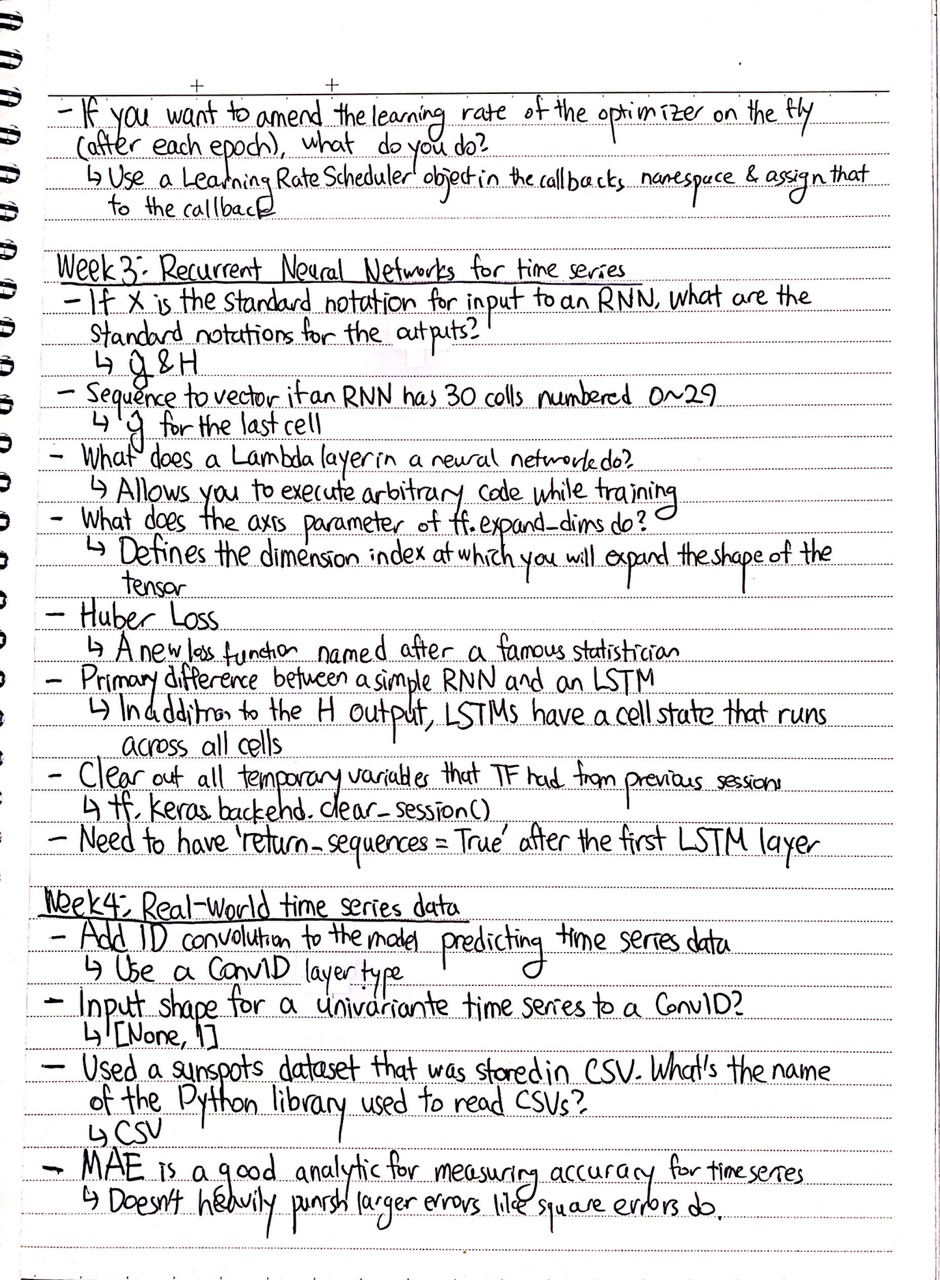 - If you want to amend the learning rate of the optimizer on the fly
(after each epoch), what do you do?
↳ Use a LearningRateScheduler object in the callbacks namespace & assign that
to the callback
Week3: Recurrent Neural Networks for time series
- If X is the standard notation for input to an RNN, what are the
standard notations for the outputs?
↳ ŷ & H
- Sequence to vector if an RNN has 30 cells numbered 0~29
↳ ŷ for the last cell
- What does a Lambda layer in a neural network do?
↳ Allows you to execute arbitrary code while training
- What does the axis parameter of tf.expand_dims do?
↳ Defines the dimension index at which you will expand the shape of the
tensor
- Huber Loss
↳ A new loss function named after a famous statistician
- Primary difference between a simple RNN and an LSTM
↳ In addition to the H output, LSTMs have a cell state that runs
across all cells
- Clear out all temporary variables that TF had from previous sessions
↳ tf.keras.backend.clear_session()
- Need to have 'return_sequences = True' after the first LSTM layer
Week4: Real-World time series data
- Add 1D convolution to the model predicting time series data
↳ Use a Conv1D layer type
- Input shape for a univariante time series to a Conv1D?
↳ [None, 1]
- Used a sunspots dataset that was stored in CSV. What's the name
of the Python library used to read CSVs?
↳ CSV
- MAE is a good analytic for measuring accuracy for time series
↳ Doesn't heavily punish larger errors like square errors do.